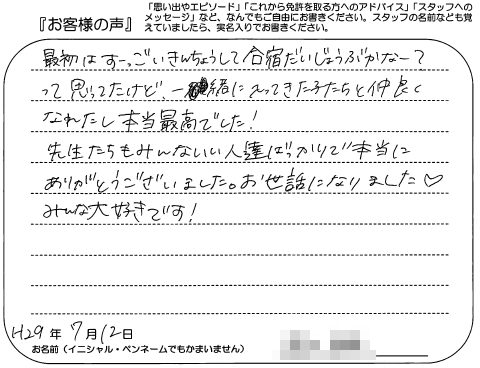 『お客様の声』
「思い出やエピソード」「これから免許を取る方へのアドバイス」「スタッフへの
メッセージ」など、なんでもご自由にお書きください。スタッフの名前なども覚
えていましたら、実名入りでお書きください。
最初はすーっごいきんちょうして合宿だいじょうぶかなーて
って思ってたけど、一緒に入ってきた子たちと仲良く
なれたし本当最高でした!
先生たちもみんないい人達ばっかりで本当に
ありがとうございました。お世話になりました♡
みんな大好きです!
H29年 7月12日
お名前(イニシャル・ペンネームでもかまいません)